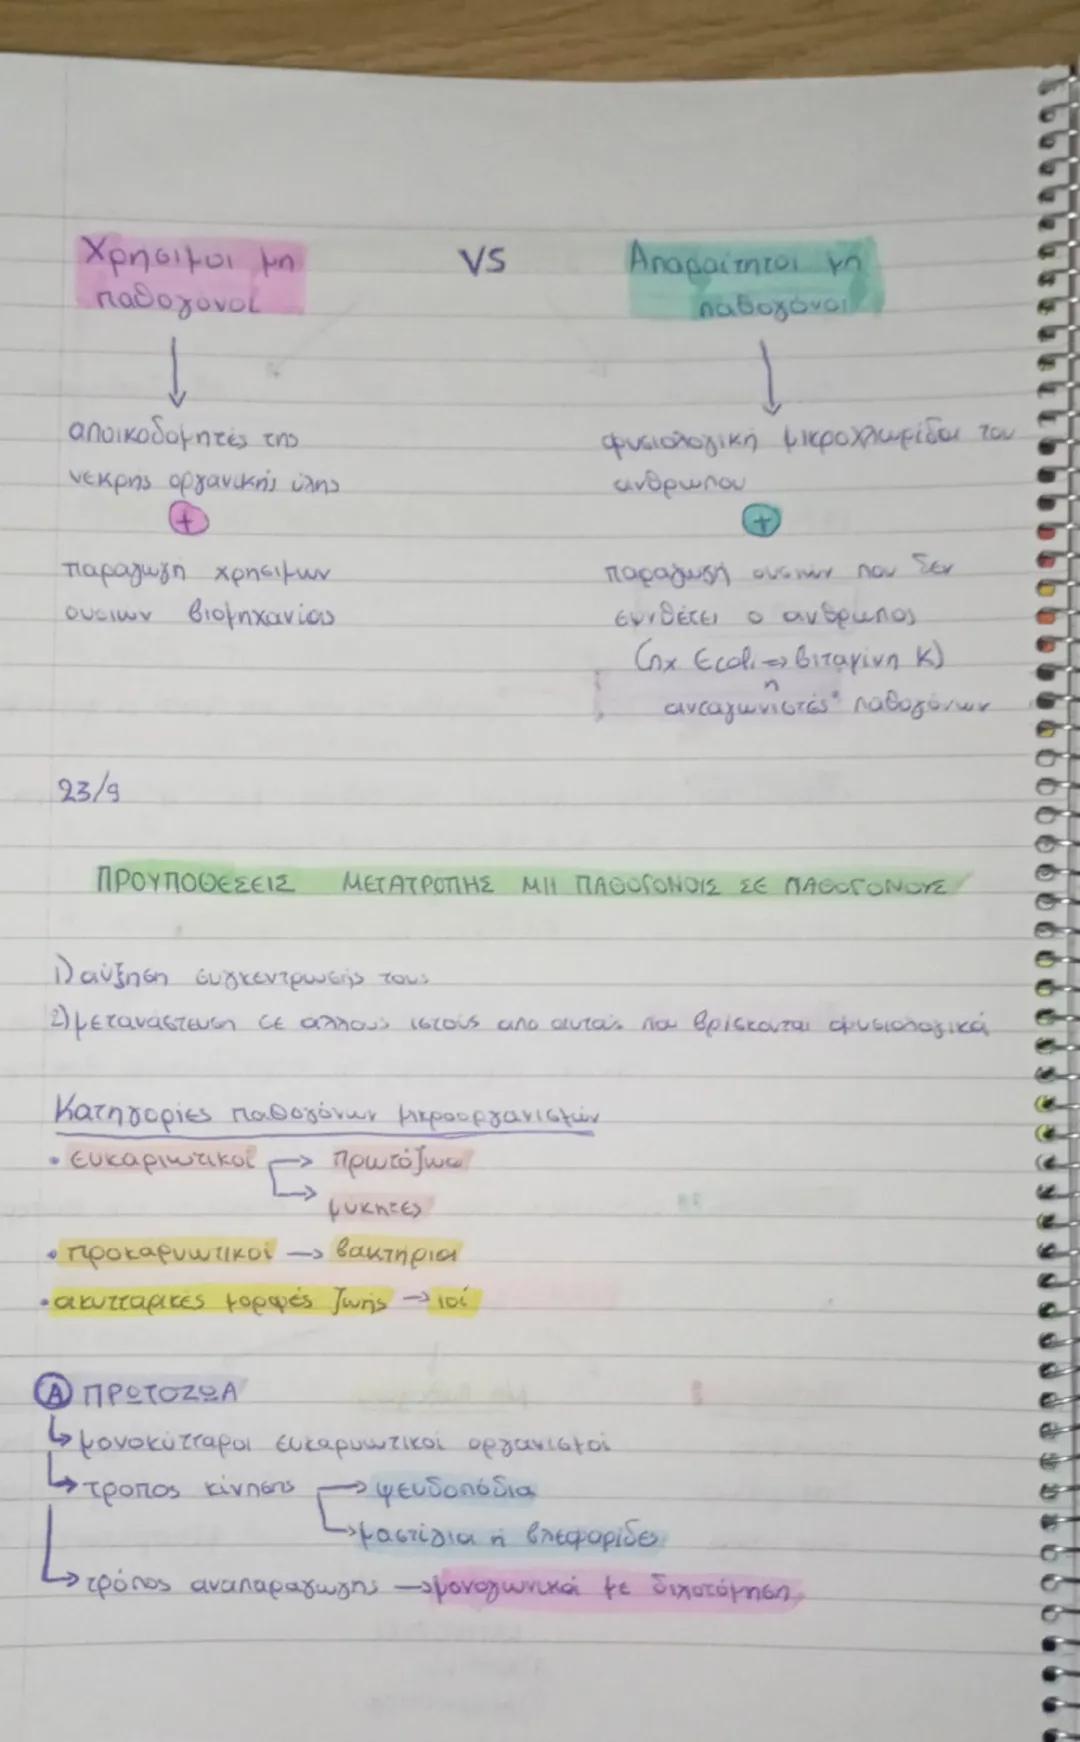 Χρησιμοι μη
παθογόνοι
VS
Απαραίτητοι μη
παθογόνοι
αποικοδομητές της
νεκρής οργανικής ύλης
+
παραγωγη χρησιμων
ουσιων βιομηχανίας
φυσιολογική μικροχλωρίδα του
ανθρωπου
+
παραγωγή ουσιών που δεν
συνθέτει ο ανθρωπος
(πχ Ecoli → βιταμίνη Κ)
η
ανταγωνιστές παθογόνων
23/9
ΠΡΟΥΠΟΘΕΣΕΙΣ ΜΕΤΑΤΡΟΠΗΣ ΜΗ ΠΑΘΟΓΟΝΟΥΣ ΣΕ ΠΑΘΟΓΟΝΟΥΣ
1) αύξηση συγκεντρωσής τους
2) μετανάστευση σε αλλους ιστούς απο αυτούς που βρίσκονται φυσιολογικά
Κατηγορίες παθογόνων μικροοργανισμών
• ευκαριωτικοί → πρωτόζωα
→ μύκητες
• προκαρυωτικοί → βακτήρια
• ακυτταρικές μορφές ζωής → ιοί
Α ΠΡΩΤΟΖΩΑ
↳ μονοκύτταροι ευκαρυωτικοί οργανισμοί
↳ τροπος κίνησης → ψευδοπόδια
→ μαστίγια ή βλεφαρίδες
↳ τρόπος αναπαραγωγης → μονογωνικά με διχοτόμηση